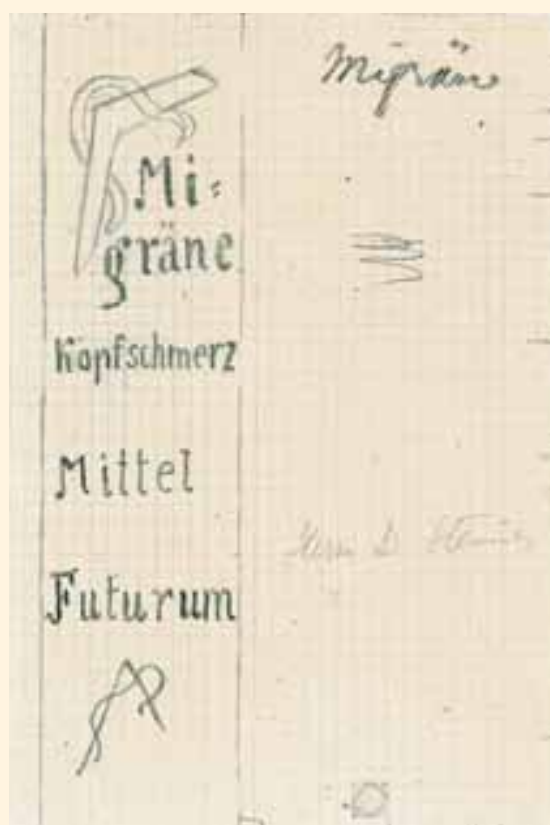 Mi=
gräne
Kopfschmerz
Mittel
Futurum
Migräne